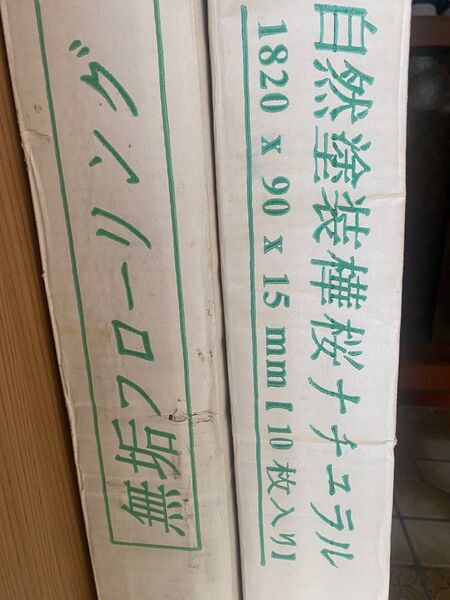 自然塗装樺桜ナチュラル
1820 x 90 x 15 mm【10枚入り】
無垢フローリング